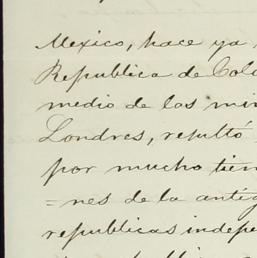 Mexico, hace ya
Republica de Colo
medio de los min
Londres, resultó
por mucho tiem
=nes de la antig
republicas indepe